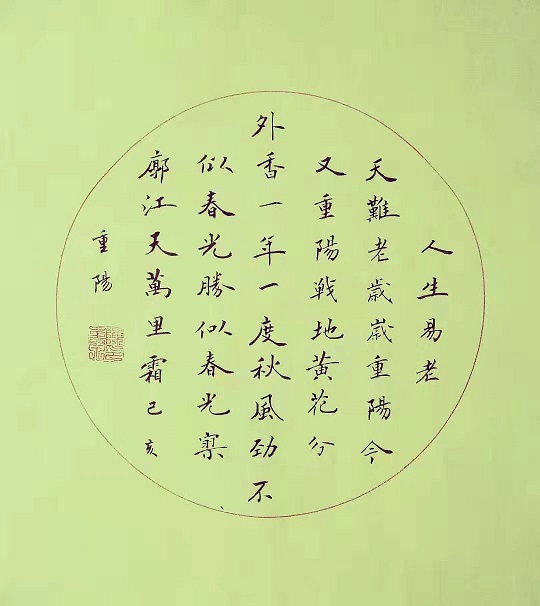 人生易老
天難老歲歲重陽今
又重陽戦地黃花分
外香一年一度秋風劲不
似春光勝似春光寥
廓江天萬里霜己亥
重陽